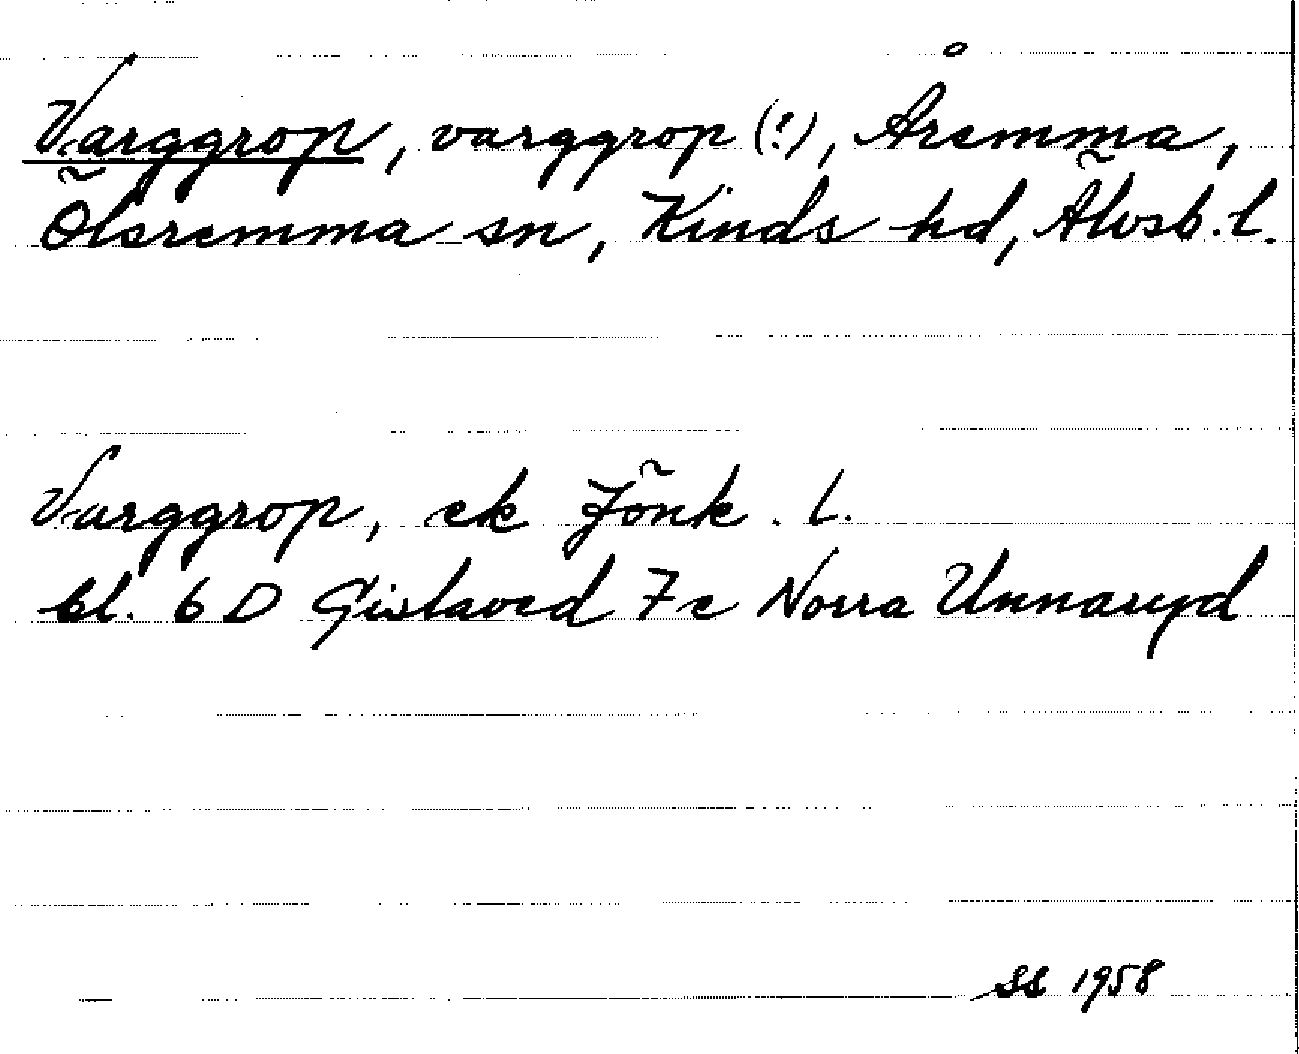 Varggrop, varggrop (!), Åremma,
Ölsremma sn, Kinds hd, Älvsb. l.
Varggrop, ek Jönk. l.
bl. 6 D Gislaved 7 e Norra Unnaryd
SS 1958